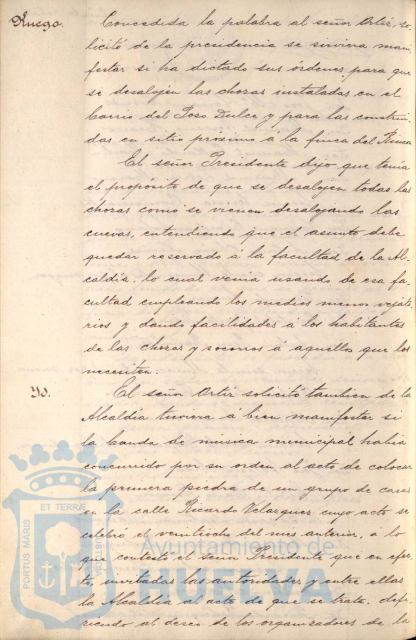 Ruego.
Concedida la palabra al señor Ortiz, so-
licitó de la presidencia se sirviera mani-
festar si ha dictado sus órdenes para que
se desalojen las chozas instaladas en el
barrio del Poso Dulce y para las construi-
das en sitio próximo á la finca del
El señor Presidente dijo que tenia
el propósito de que se desalojen todas las
chozas como se vienen desalojando las
cuevas, entendiendo que el asunto debe
quedar reservado á la facultad de la Al-
caldia, lo cual venia usando de esa fa-
cultad empleando los medios menos vejato-
rios y dando facilidades á los habitantes
de las chozas y socorros á aquellos que los
necesiten.
Yd.
El señor Ortiz solicitó tambien de la
Alcaldía tuviera á bien manifestar si
la banda de música municipal habia
concurrido por su orden al acto de colocar
la primera piedra de un grupo de casas
en la calle Ricardo Velazquez cuyo acto se
celebró el veintiocho del mes anterior, á lo
que contestó el señor Presidente que en efec-
to, invitadas las autoridades, y entre ellas
la Alcaldia al acto de que se trata, defi-
riendo al deseo de los organizadores de la
PORTUS MARIS ET TERRAE CUSTODIA
Ayuntamiento de
HUELVA